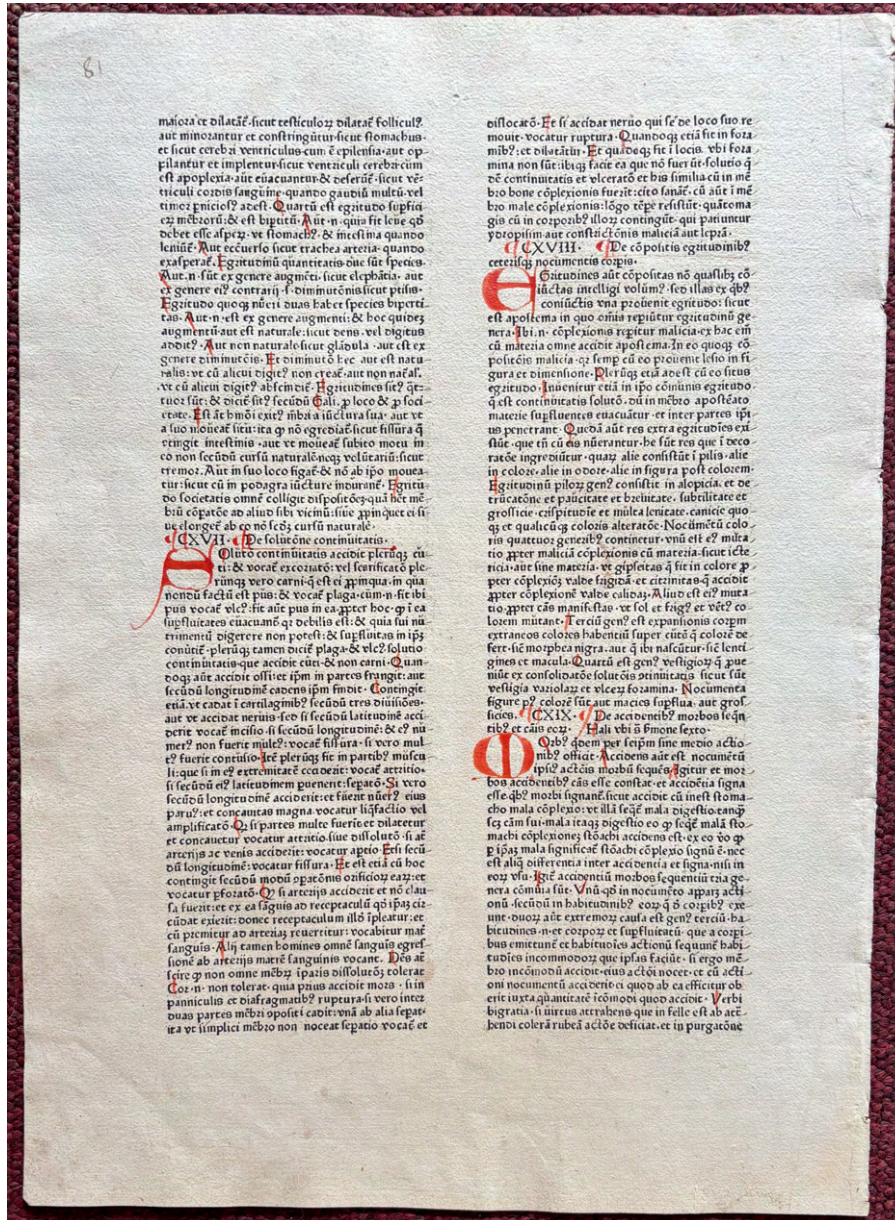 81
maiora et dilatāt̃·sicut testiculoꝝ dilatat̃ follicul?
aut minorantur et constringūtur·sicut stomachus·
et sicut cerebri ventriculus·cum ē epilensia·aut op-
pilantur et implentur·sicut ventriculi cerebri·cum
est apoplexia·aut euacuantur·& deserūt̃·sicut vē-
triculi cordis sanguine·quando gaudiū multū·vel
timor ꝑniciosꝰ adest·Quartū est egritudo supficiei
eꝝ mēbroꝝ:& est biptitū·Aut·n·quia fit leue qd̄
debet esse asperꝝ·vt stomach?·& intestina quando
leniūt̃·Aut eccuerso sicut trachea arteria·quando
exasperat̃·Egritudinū quantitatis due sūt species·
Aut·n·sūt ex genere augmēti·sicut elephātia·aut
ex genere ei? contrarij·s·diminutōnis·sicut ptisis·
Egritudo quoqꝫ nūeri duas habet species bipti
tas·Aut·n·est ex genere augmenti:& hoc quideꝫ
augmentū·aut est naturale:sicut dens·vel digitus
addit?·Aut non naturale·sicut glādula·aut est ex
genere diminutōis·Et diminutō hec aut est natu
ralis:vt cū alicui digit? non creat̃·aut non nat̃al̃·
vt cū alicui digit? abscindit̃·Egritudines sit? q̄t-
tuor sūt:& dicit̃ sit? secūdū Gali·ꝓ loco & ꝓ soci-
etate·Est at̄ hmōi exit? mēbri a iūctura sua·aut vt
a suo moueat̃ situ:ita qꝫ nō egrediat̃·sicut fissura q̄
cōtingit intestinis·aut vt moueat̃ subito motu in
co non secūdū cursū naturalē·neqꝫ volūtariū:sicut
tremor·Aut in suo loco figat̃·& nō ab ip̄o mouea
tur:sicut cū in podagra iūcture indurant̃·Egritu
do societatis omnē colligit dispositōeꝫ·quā hēt mē
brū cōpatōe ad aliud sibi vicinū:siue ꝓpinquet ei si
ue elonget̃ ab eo nō scdꝫ cursū naturalē·
CXVII·De solutōne continuitatis·
Solutō continuitatis accidit plerūqꝫ cu
ti:& vocat̃ excoriatō:vel scarificatō ple
rūqꝫ vero carni·q̄ est ei ꝓpinqua·in qua
nondū factū est pus:& vocat̃ plaga·cum·n·fit ibi
pus vocat̃ vlc?:fit aūt pus in ea·ꝓpter hoc·qꝫ ī ea
supfluitates euacuant̃ qꝛ debilis est:& quia sui nu
trimentū digerere non potest:& supfluitas in ip̄ꝫ
conūtit̃·plerūqꝫ tamen dicit̃ plaga·& vlc? solutio
continuitatis·que accidit cuti·& non carni·Quan-
doqꝫ aūt accidit ossi:et ip̄m in partes frangit:aut
secūdū longitudinē cadens ip̄m findit·Contingit
etiā·vt cadat ī cartilaginib? secūdū tres diuisiōes·
aut vt accidat neruis·sed si secūdū latitudinē acci
derit vocat̃ incisio·si secūdū longitudinē:& e? nu
mer? non fuerit mult?:vocat̃ fissura·si vero mul
t? fuerit contusio·Itē plerūqꝫ fit in partib? muscu
li:que si in e? extremitate acciderit:vocat̃ attritio·
si secūdū ei? latitudinem puenerit:sepatō·Si vero
secūdū longitudinē acciderit:et fuerit nūer? eius
paru?:et concauitas magna vocatur liqfactio vel
amplificatō·Qꝫ si partes multe fuerit et dilatetur
et concauetur vocatur attritio·siue dissolutō·si at̄
arterijs ac venis acciderit:vocatur aptio·Etsi secū-
dū longitudinē:vocatur fissura·Et est etiā cū hoc
contingit secūdū modū opatōnis orificioꝝ eaꝝ:et
vocatur pforatō·Qꝫ si arterijs acciderit et nō clau
sa fuerit:et ex ea sāguis ad receptaculū qd̄ ip̄aꝫ cir
cūdat exierit:donec receptaculum illd̄ īpleatur:et
cū premitur ad arteriaꝫ reuertitur:vocabitur mat̃
sanguis·Alij tamen homines omnē sanguis egres-
sionē ab arterijs matrē sanguinis vocant. Dēs at̄
scire qꝫ non omne mēbꝝ īparis dissolutōꝫ tolerat
Cor·n·non tolerat·quia prius accidit mors·si in
panniculis et diafragmatib? ruptura·si vero inter
duas partes mēbri opositi cadit:vnā ab alia sepat·
ita vt simplici mēbro non noceat sepatio vocat̃ et
dislocatō·Et si accidat neruo qui se de loco suo re
mouit·vocatur ruptura·Quandoqꝫ etiā fit in fora
mib?:et dilatātur·Et quādoqꝫ fit ī locis·vbi fora
mina non sūt:ibiqꝫ facit ea que nō fuerūt·solutio q̄
de continuitatis et vlceratō et his similia·cū in mē
bro bone cōplexionis fuerit:cito sanat̃·cū aūt ī mē
bro male cōplexionis:lōgo tēpe resistūt·quāto ma
gis cū in corporib? illoꝝ contingūt·qui patiuntur
ydropisim·aut constrictōnis maliciā·aut leprā·
CXVIII·De cōpositis egritudinib?
ceterisqꝫ nocumentis corpis·
Egritudines aūt cōpositas nō quaslibꝫ cō
iūctas intelligi volum?·sed illas ex qb?
coniūctis vna prouenit egritudo:sicut
est apostema in quo omīs repiūtur egritudinū ge
nera·Ibi·n·cōplexionis repitur malicia·ex hac em̄
cū materia omne accidit apostema·In eo quoqꝫ cō
positōis malicia·qꝛ semp cū eo prouenit lesio in fi
gura et dimensione·Plerūqꝫ etiā adest cū eo situs
egritudo·Inuenitur etiā in ip̄o cōmunis egritudo
q̄ est continuitatis solutō·dū in mēbro apostēato
materie supfluentes euacuātur·et inter partes ip̄i
us penetrant·Quedā aūt res extra egritudies exi
stūt·que tn̄ cū eis nūerantur·he sūt res que ī deco
ratōe ingrediūtur·quaꝝ alie consistūt ī pilis·alie
in colore·alie in odore·alie in figura post colorem·
Egritudinū piloꝝ gen? consistit in alopicia·et de
trūcatōne et paucitate et breuitate·subtilitate et
grossicie·crispitudie et multa lenitate·canicie quo
qꝫ et qualicūqꝫ coloris alteratōe·Nocumētū colo
ris quattuor generib? continetur·vnū est e? muta
tio ꝓpter maliciā cōplexionis cū materia·sicut icte
ricia·aut sine materia·vt gipseitas q̄ fit in colore ꝓ
pter cōplexiōꝫ valde frigidā·et citrinitas·q̄ accidit
ꝓpter cōplexionē valde calidaꝫ·Aliud est ei? muta
tio·ꝓpter cās manifestas·vt sol et frig? et vēt? co
lorem mutant·Terciū gen? est expansionis corpm
extraneos colores habentiū super cutē q̄ colorē de
fert·sic̄ morphea nigra·aut q̄ ibi nascūtur·sic̄ lenti
gines et macula·Quartū est gen? vestigioꝝ q̄ ꝓue
niūt ex consolidatōe solutōis cōtinuitatis sicut sūt
vestigia variolaꝝ et vlceꝝ foramina·Nocumenta
figure p? colorē sūt aut macies supflua·aut gros
sicies·CXIX·De accidentib? morbos seqn̄
tib? et cāis eoꝝ·Hali vbi s̄ sermone sexto·
Morb? qdem per seip̄m sine medio actio-
nib? officit·Accidens aūt est nocumētū
ipsi? actōis morbū sequēs·Igitur et mor
bos accidentib? cās esse constat·et accidētia signa
esse·qb? morbi signant̃·sicut accidit cū inest stoma-
cho mala cōplexio:vt illā seqt̃ mala digestio·tanqꝫ
scꝫ cām sui·mala itaqꝫ digestio eo qꝫ seqt̃ malā sto-
machi cōplexioneꝫ stōachi accidens est·ex eo vo qꝫ
ꝑ ip̄aꝫ mala significat̃ stōachi cōplexio signū ē·nec
est aliq̄ differentia inter accidentia et signa·nisi in
eoꝝ vsu·Igit̃ accidentiū morbos sequentiū tria ge-
nera cōmūia sūt·Vnū qd̄ in nocumēto apparꝫ acti
onū·secūdū in habitudinib? eoꝝ q̄ d̄ corpib? exe
unt·duoꝝ aūt extremoꝝ causa est gen? terciū·ha
bitudines·n·et corpoꝝ et supfluitatū·que a corpi
bus emittunt̃ et habitudies actionū sequunt̃ habi
tudies incommodoꝝ que ipsas faciūt·si ergo mē-
bro incōmodū accidit·eius actōi nocet·et cū acti-
oni nocumentū acciderit·ei quod ab ea efficitur ob
erit iuxta quātitatē īcōmodi quod accidit·Verbi
bigratia·si uirtus attrahens que in felle est ab att̄-
hendi colerā rubeā actōe deficiat·et in purgatōne